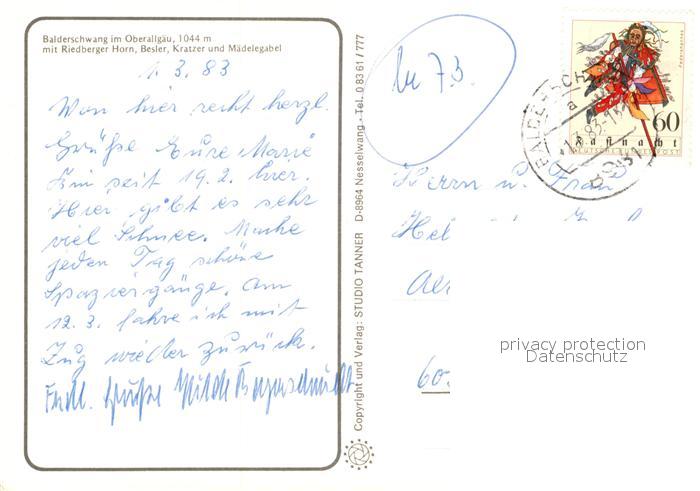 Balderschwang im Oberallgäu, 1044 m
mit Riedberger Horn, Besler, Kratzer und Mädelegabel
1. 3. 83
Von hier recht herzl.
Grüße Eure Marie
Bin seit 19.2. hier.
Hier gibt es sehr
viel Schnee. Mache
jeden Tag schöne
Spaziergänge. Am
12.3. fahre ich mit
Zug wieder zurück.
Grüße Hilde
Copyright und Verlag: STUDIO TANNER D-8964 Nesselwang - Tel. 0 83 61 / 777
73.
60
Fastnacht
DEUTSCHE BUNDESPOST
BALDERSCHWANG
a
-1.3.83-1
Herrn u. Frau
Hel
60
privacy protection
Datenschutz